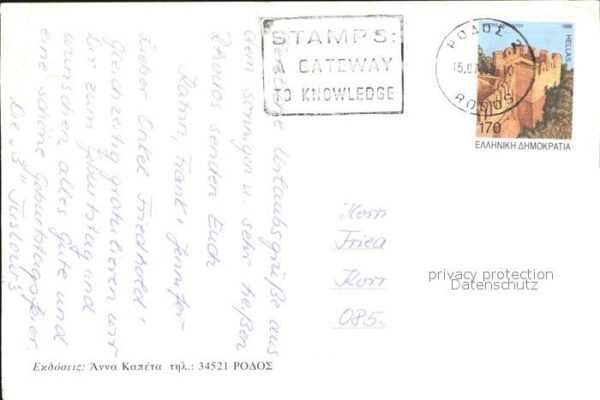 STAMPS:
A GATEWAY
TO KNOWLEDGE
ΡΟΔΟΣ 2
15.07
RODOS
1998
HELLAS
170
ΕΛΛΗΝΙΚΗ ΔΗΜΟΚΡΑΤΙΑ
Urlaubsgrüße aus
dem sonnigen u. sehr heißen
Rhodos senden Euch
Karin, Frank, Jennifer
Lieber Onkel Friedhold!
Gleichzeitig gratulieren wir
Dir zum Geburtstag und
wünschen alles Gute und
eine schöne Geburtstagsfeier.
Die "3"
Herrn
Fried
Herr
085
privacy protection
Datenschutz
Εκδόσεις: Άννα Καπέτα τηλ.: 34521 ΡΟΔΟΣ